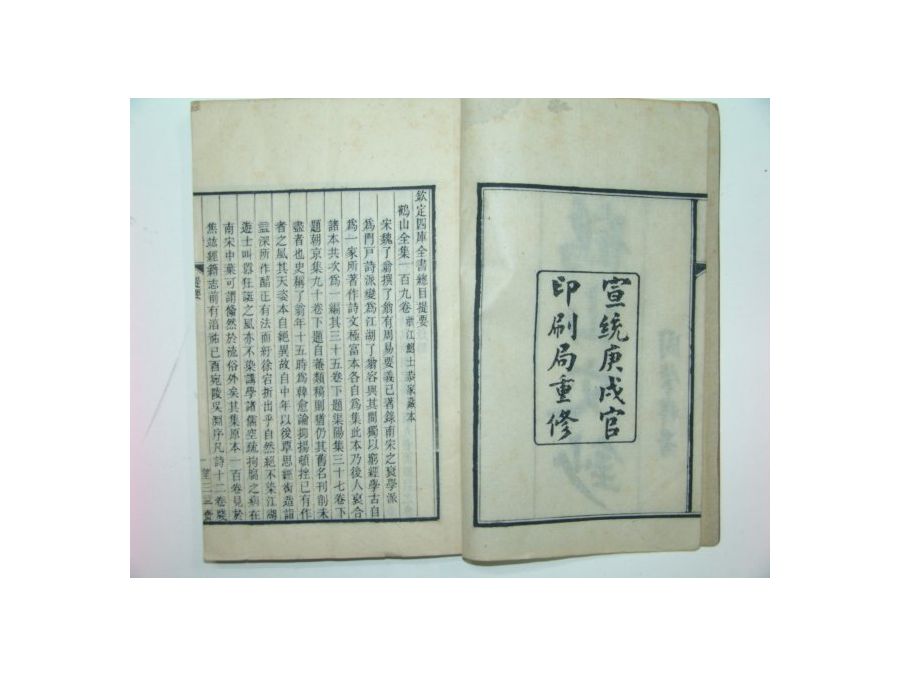 宣統庚戌官
印刷局重修
欽定四庫全書總目提要
鶴山全集一百九卷 浙江鮑士恭家藏本
宋魏了翁撰了翁有周易要義已著錄南宋之衰學派
爲門戶詩派變爲江湖了翁容與其間獨以窮經學古自
爲一家所著作詩文極富本各自爲集此本乃後人裒合
諸本共次爲一編其三十五卷下題渠陽集三十七卷下
題朝京集九十卷下題自菴類稿則猶仍其舊名刊削未
盡者也史稱了翁年十五時爲韓愈論抑揚頓挫已有作
者之風其天姿本自絕異故自中年以後覃思經術造詣
益深所作醇正有法而紆徐宕折出乎自然絕不染江湖
遊士叫囂狂誕之風亦不染講學諸儒空疏拘腐之病在
南宋中葉可謂翛然於流俗外矣其集原本一百卷見於
焦竑經籍志前有淳祐己酉宛陵吳淵序凡詩十二卷牋